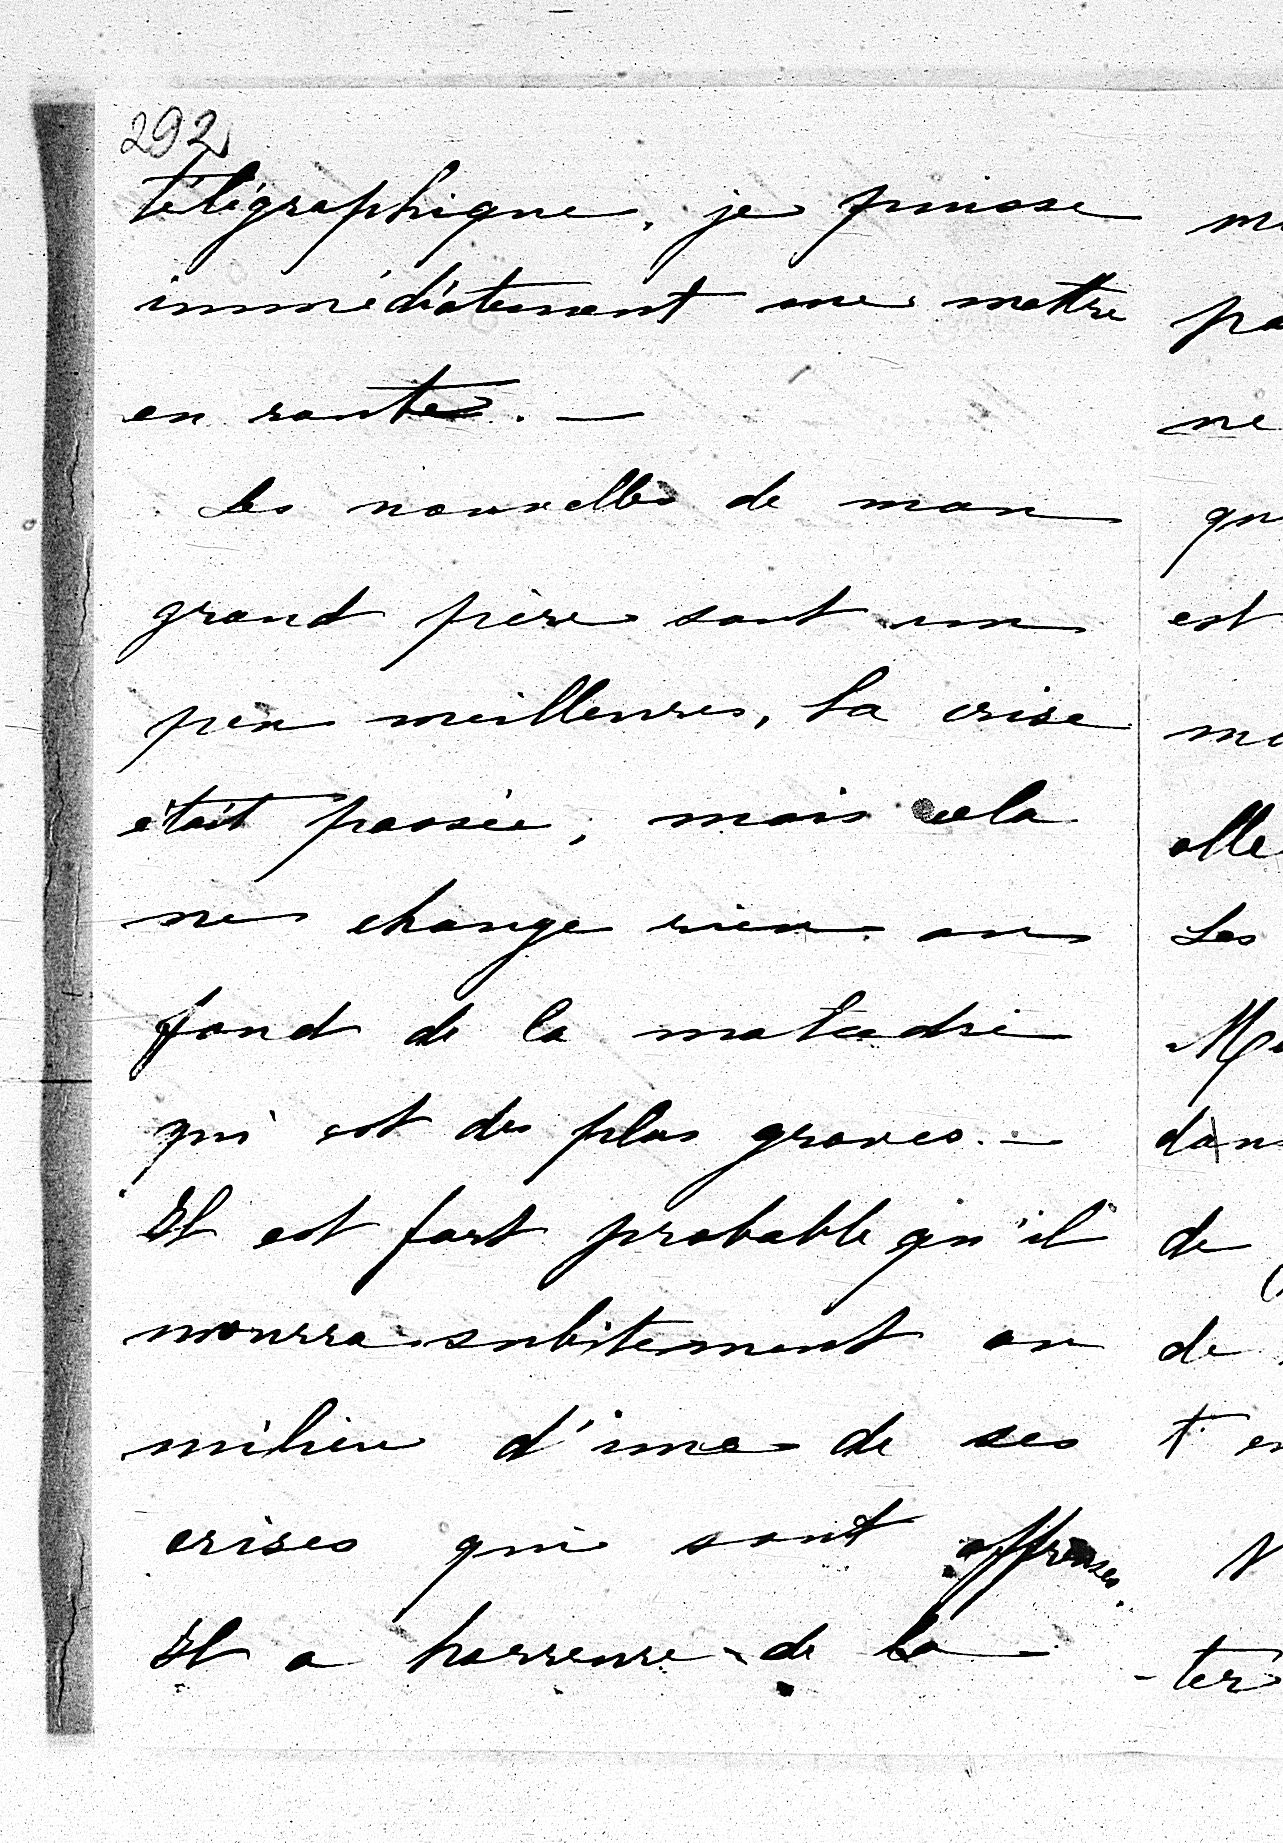 292
télégraphique, je puisse
immédiatement me mettre
en route. —
Les nouvelles de mon
grand père sont un
peu meilleures, la crise
était passée, mais cela
ne change rien au
fond de la maladie
qui est des plus graves. —
Il est fort probable qu'il
mourra subitement au
milieu d'une de ses
crises qui sont affreuses.
Il a horreur de la
ne
est
Les
dans
de
de